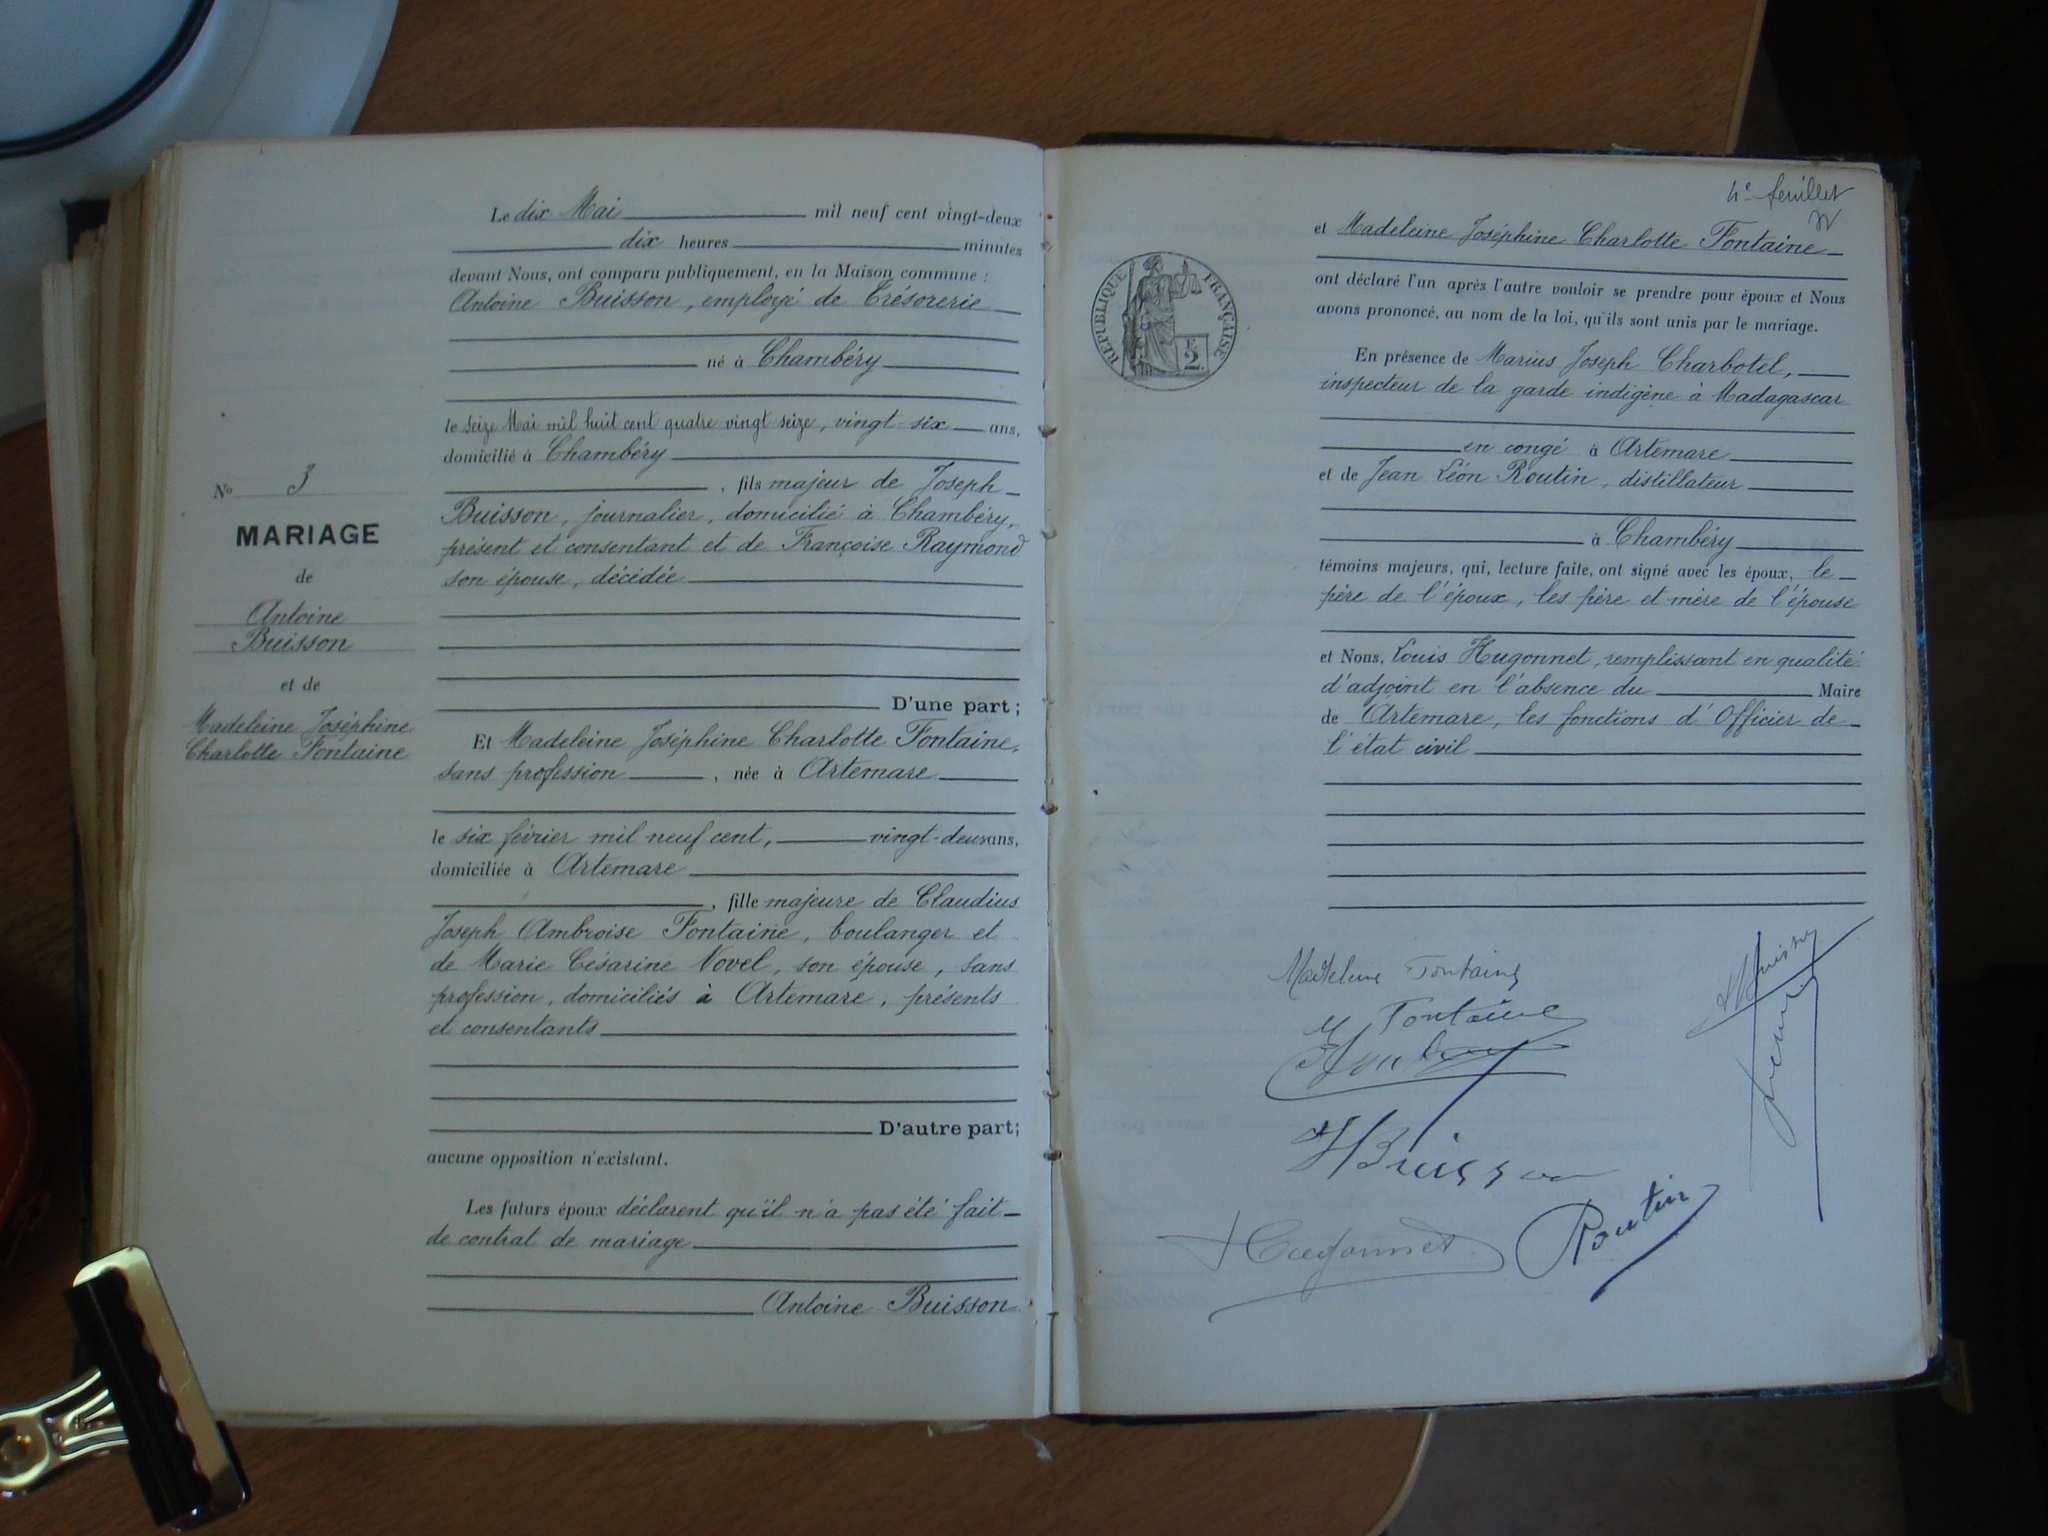 Le dix Mai mil neuf cent vingt-deux
dix heures minutes
devant Nous, ont comparu publiquement, en la Maison commune :
Antoine Buisson, employé de Trésorerie
né à Chambéry
le seize Mai mil huit cent quatre vingt seize, vingt-six ans,
domicilié à Chambéry
, fils majeur de Joseph
Buisson, journalier, domicilié à Chambéry,
présent et consentant et de Françoise Raymond
son épouse, décédée
D'une part ;
No 3
MARIAGE
de
Antoine
Buisson
et de
Madeleine Joséphine
Charlotte Fontaine
Et Madeleine Joséphine Charlotte Fontaine,
sans profession , née à Artemare
le six février mil neuf cent, vingt-deux ans,
domiciliée à Artemare
, fille majeure de Claudius
Joseph Ambroise Fontaine, boulanger et
de Marie Césarine Novel, son épouse, sans
profession, domiciliés à Artemare, présents
et consentants
D'autre part ;
aucune opposition n'existant.
Les futurs époux déclarent qu'il n'a pas été fait
de contrat de mariage
Antoine Buisson
4e feuillet
et Madeleine Joséphine Charlotte Fontaine
RÉPUBLIQUE FRANÇAISE
2
ont déclaré l'un après l'autre vouloir se prendre pour époux et Nous
avons prononcé, au nom de la loi, qu'ils sont unis par le mariage.
En présence de Marius Joseph Charbotel,
inspecteur de la garde indigène à Madagascar
en congé à Artemare
et de Jean Léon Routin, distillateur
à Chambéry
témoins majeurs, qui, lecture faite, ont signé avec les époux, le
père de l'époux, les père et mère de l'épouse
et Nous, Louis Hugonnet, remplissant en qualité
d'adjoint en l'absence du Maire
de Artemare, les fonctions d'Officier de
l'état civil
Madeleine Fontaine
Fontaine
Buisson
Hugonnet
Routin